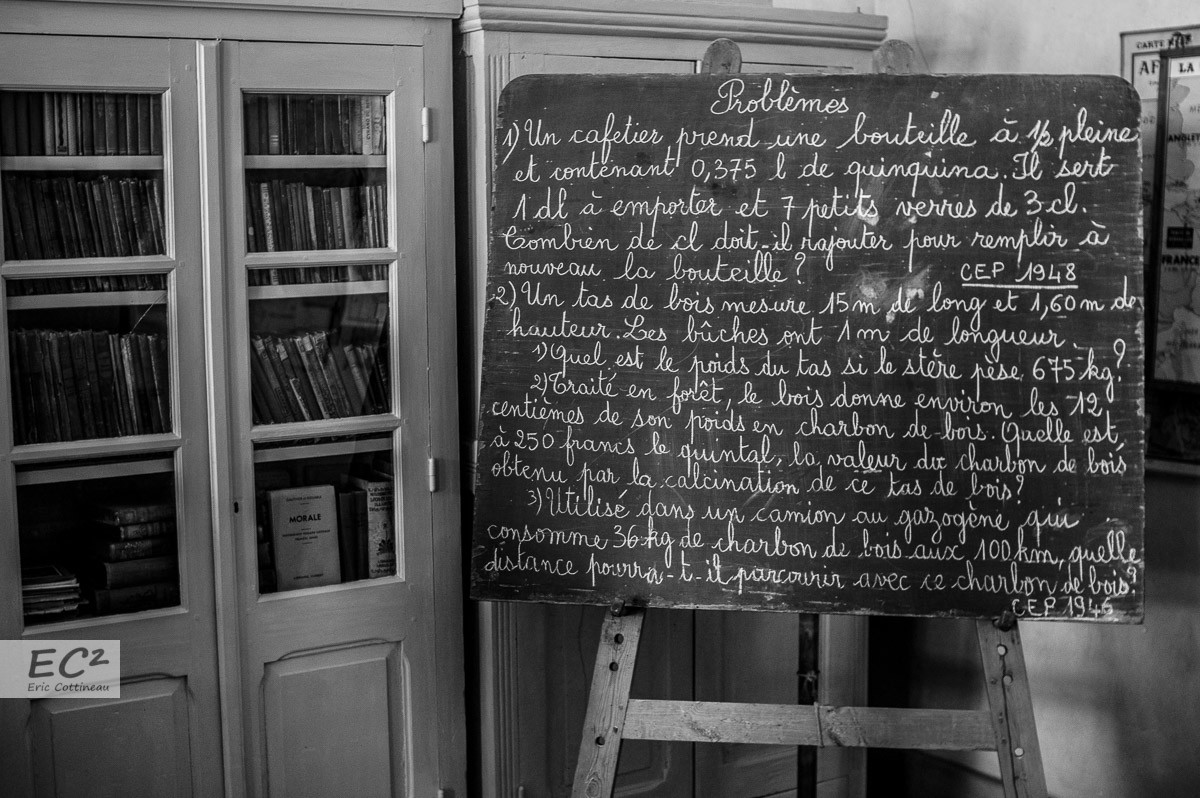 Problèmes
1) Un cafetier prend une bouteille à ½ pleine
et contenant 0,375 l de quinquina. Il sert
1 dl à emporter et 7 petits verres de 3 cl.
Combien de cl doit-il rajouter pour remplir à
nouveau la bouteille?
CEP 1948
2) Un tas de bois mesure 15 m de long et 1,60 m de
hauteur. Les bûches ont 1 m de longueur.
1) Quel est le poids du tas si le stère pèse 675 kg?
2) Traité en forêt, le bois donne environ les 12
centièmes de son poids en charbon de bois. Quelle est,
à 250 francs le quintal, la valeur du charbon de bois
obtenu par la calcination de ce tas de bois?
3) Utilisé dans un camion au gazogène qui
consomme 36 kg de charbon de bois aux 100 km, quelle
distance pourra-t-il parcourir avec ce charbon de bois?
CEP 1946
MORALE
CARTE
AF
LA
FRANCE
EC²
Eric Cottineau